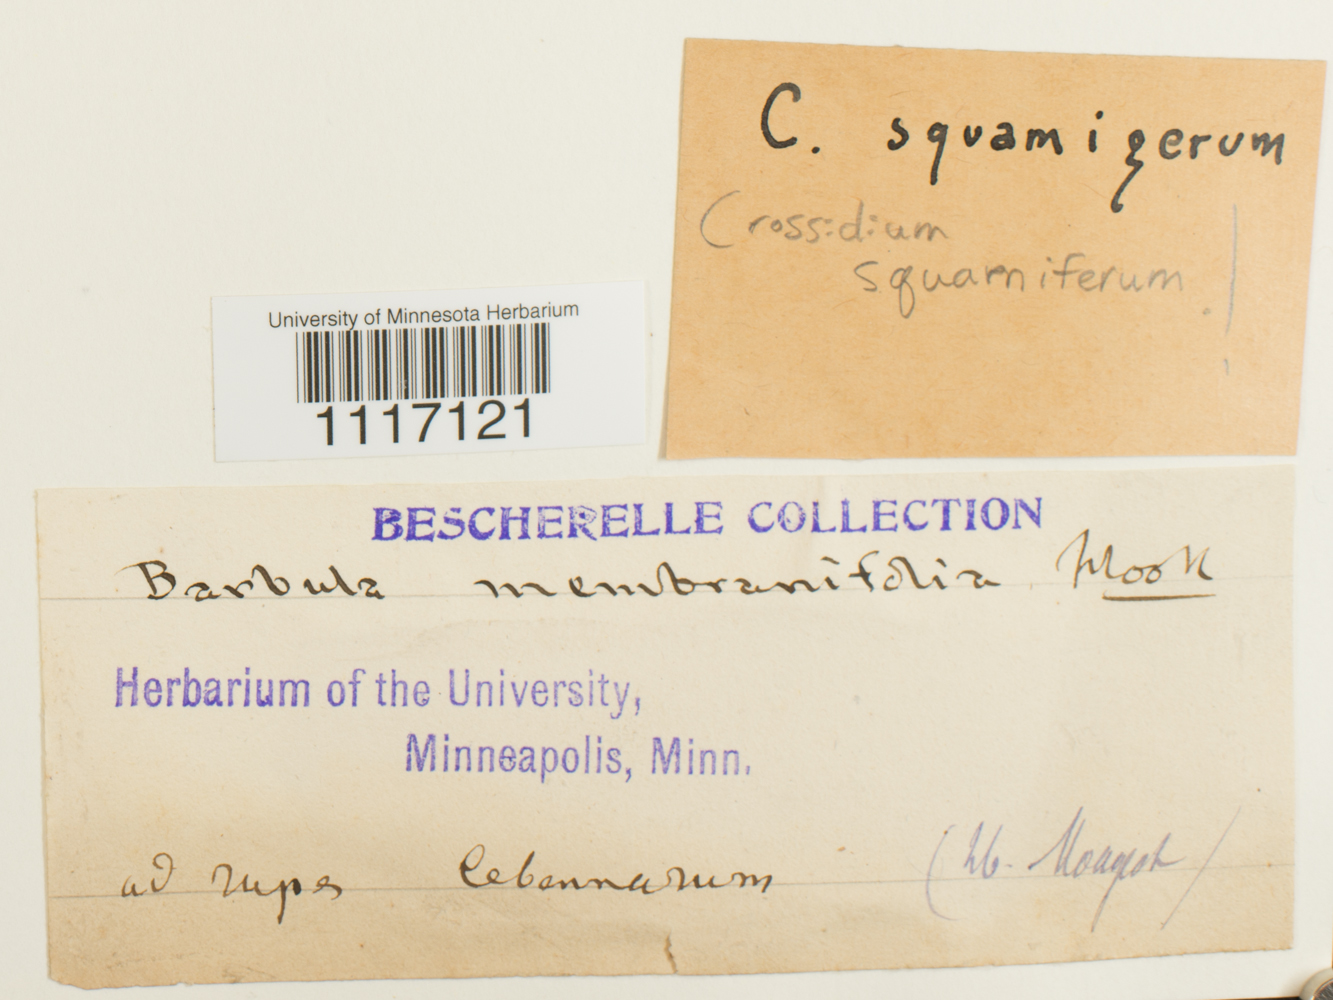 C. squamigerum
Crossidium
squamiferum !
University of Minnesota Herbarium
1117121
BESCHERELLE COLLECTION
Barbula membranifolia Hook
Herbarium of the University,
Minneapolis, Minn.
ad rupes Cebennarum
(hb.